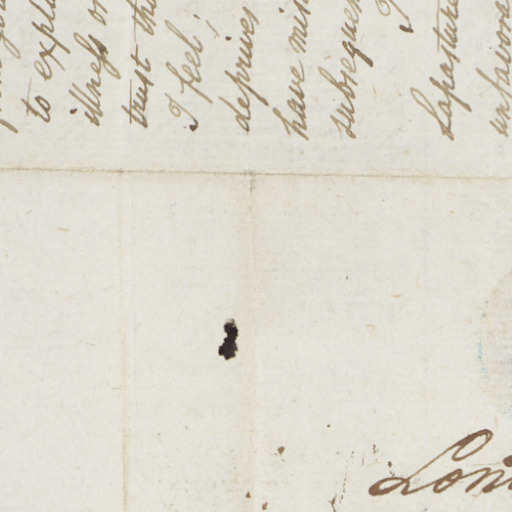 to expla
illness or
trust tha
I feel;
deprives
have mis
subsequen
Lapasture
unfavora
Lon